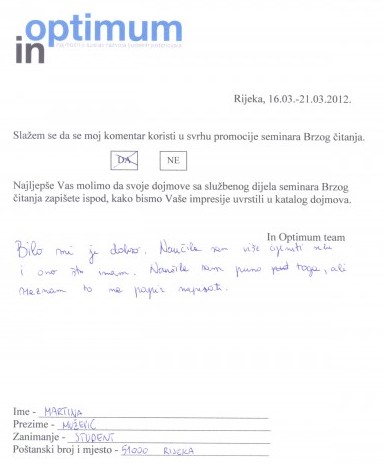 in optimum
Rijeka, 16.03.-21.03.2012.
Slažem se da se moj komentar koristi u svrhu promocije seminara Brzog čitanja.
DA NE
Najljepše Vas molimo da svoje dojmove sa službenog dijela seminara Brzog
čitanja zapišete ispod, kako bismo Vaše impresije uvrstili u katalog dojmova.
In Optimum team
Bilo mi je dobro. Naučila sam više cijeniti sebe
i ono što imam. Naučila sam puno toga, ali
neznam to na papir napisati.
Ime - MARTINA
Prezime - MUŽEVIĆ
Zanimanje - STUDENT
Poštanski broj i mjesto - 51000 RIJEKA